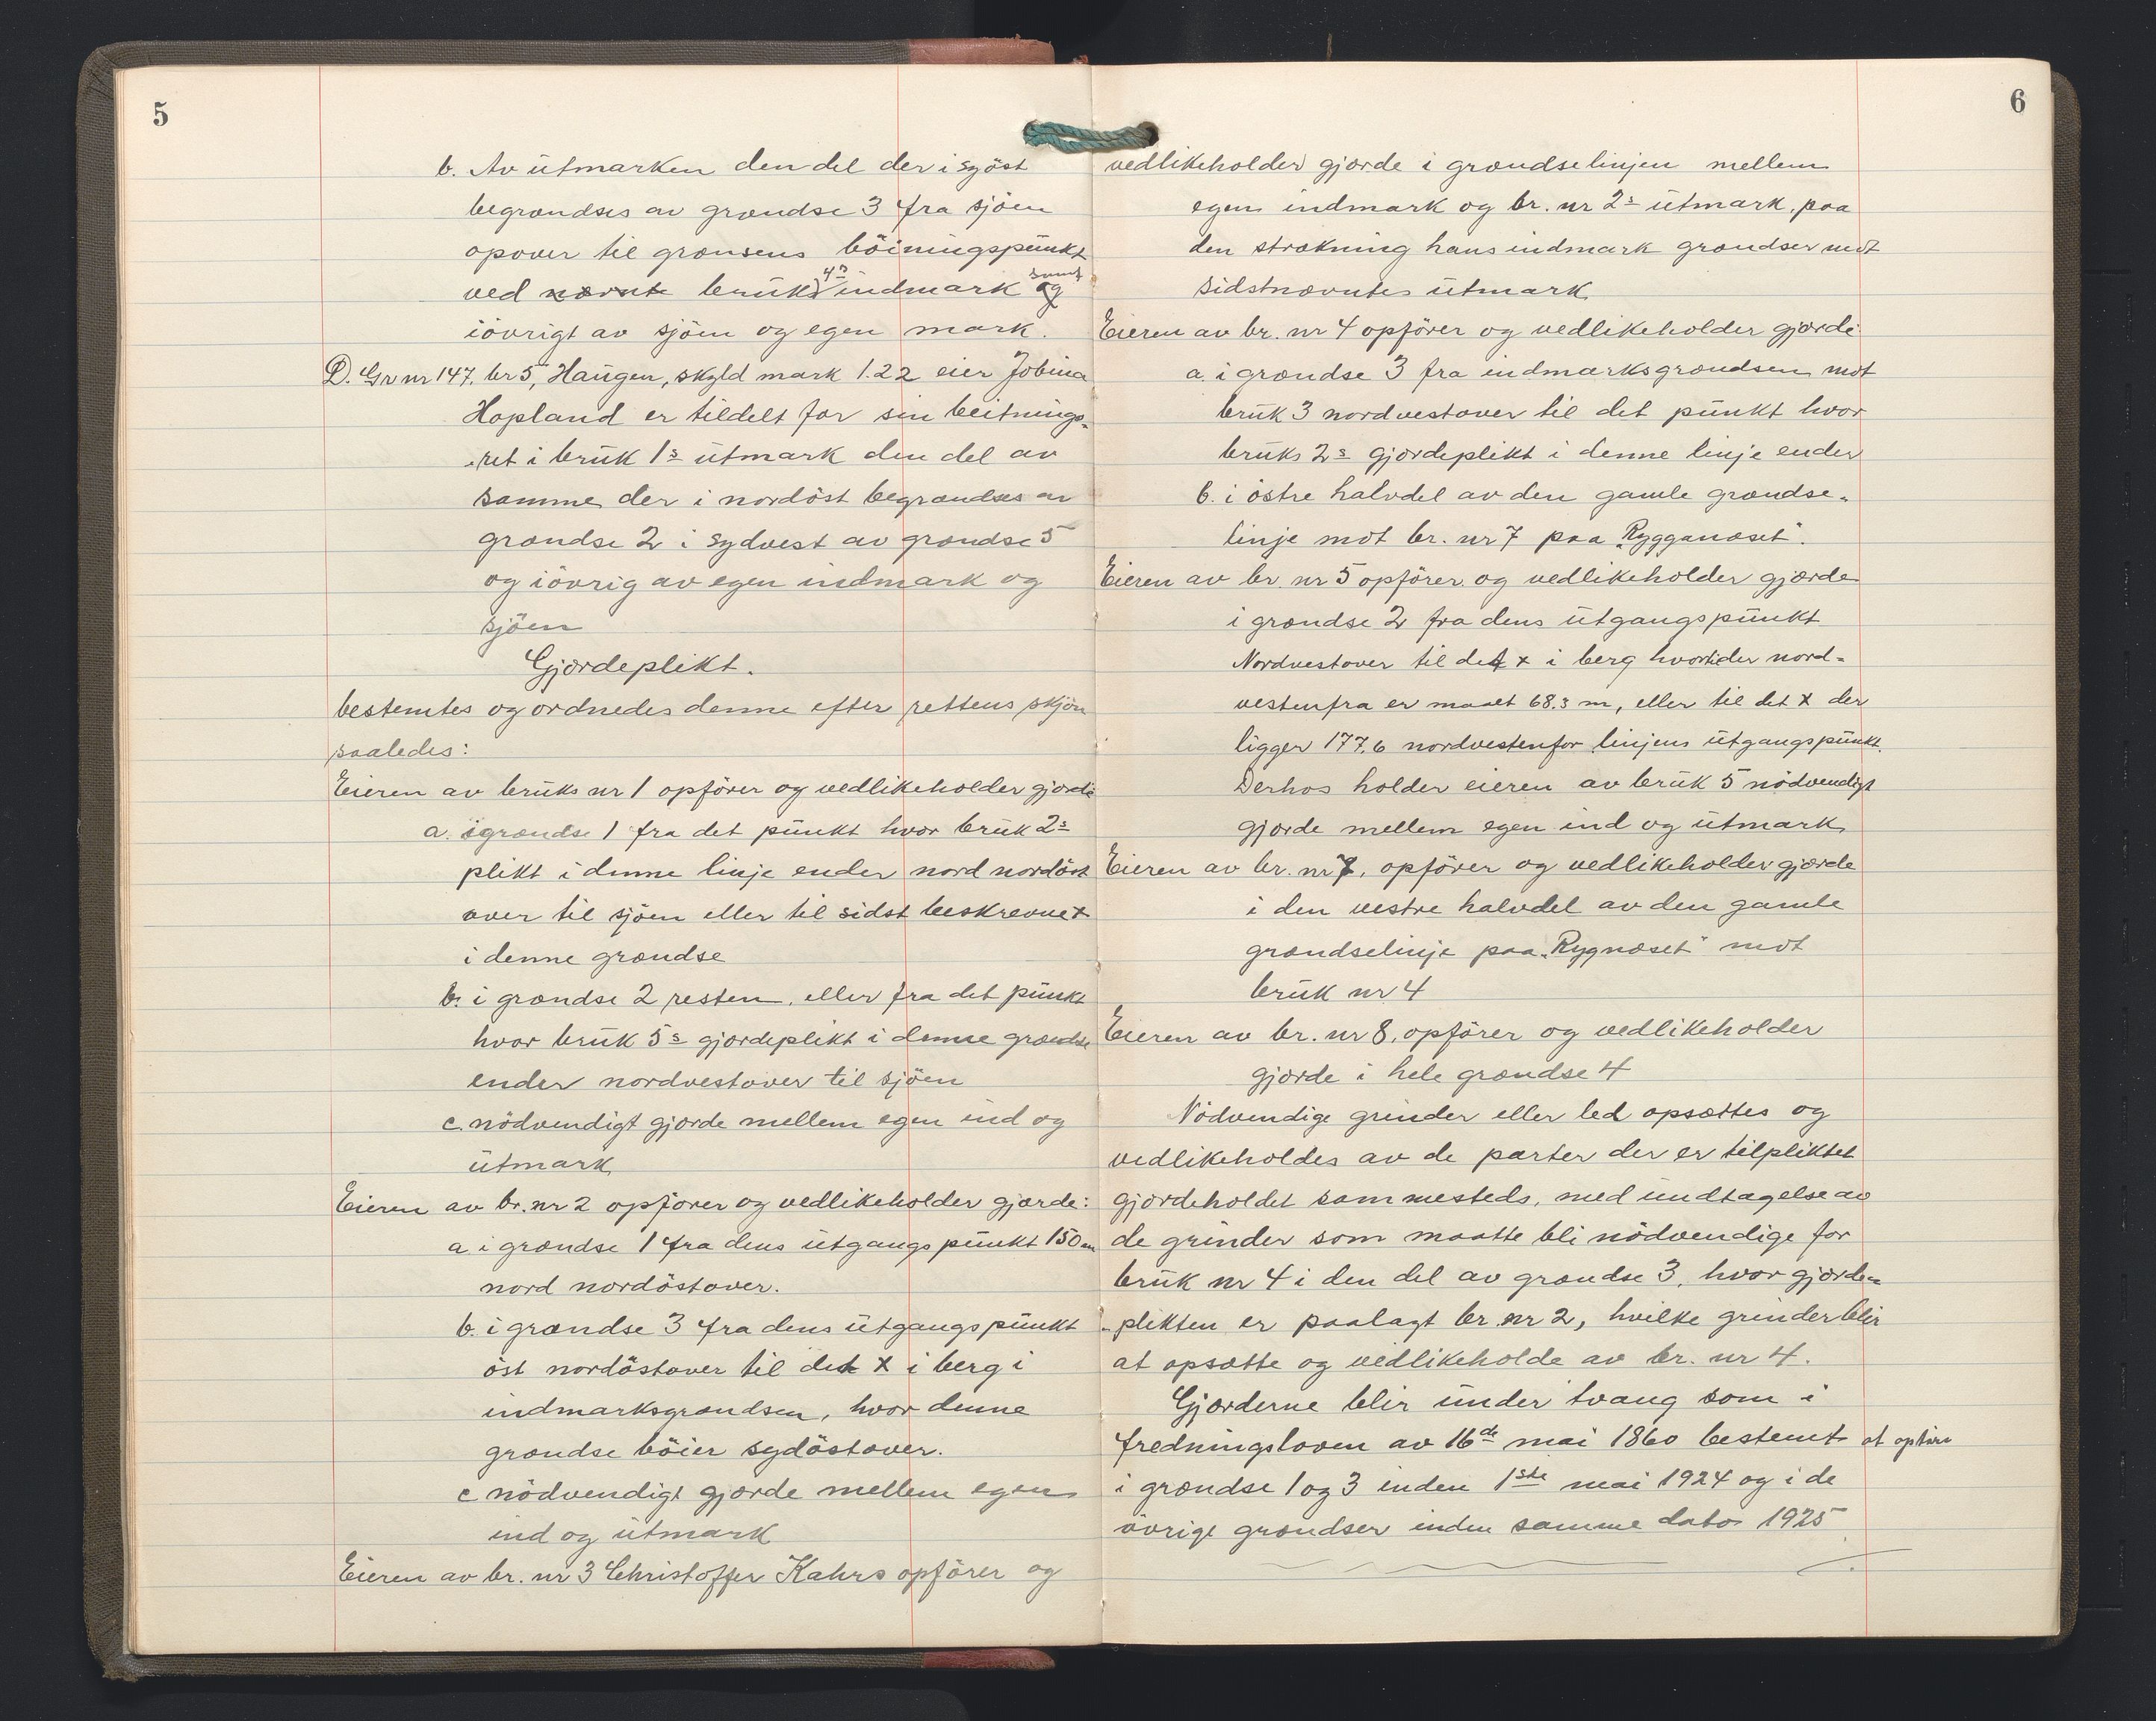 5
b. Av utmarken den del der i syöst
begrændses av grændse 3 fra sjöen
opover til grænsens böiningspunkt
ved nævnte bruks 4s indmark og samt
iövrigt av sjöen og egen mark.
D. Gr nr 147, br 5, Haugen, skyld mark 1.22 eier Jobina
Hopland er tildelt for sin beitnings-
-ret i bruk 1s utmark den del av
samme der i nordöst begrændses av
grændse 2 i sydvest av grændse 5
og iövrig av egen indmark og
sjöen
Gjærdeplikt.
bestemtes og ordnedes denne efter rettens skjön
saaledes:
Eieren av bruks nr 1 opförer og vedlikeholder gjærde
a. i grændse 1 fra det punkt hvor bruk 2s
plikt i denne linje ender nord nordöst
over til sjöen eller til sidst beskrevne x
i denne grændse
b. i grændse 2 resten, eller fra det punkt
hvor bruk 5s gjærdeplikt i denne grændse
ender nordvestover til sjöen
c. nödvendigt gjærde mellem egen ind og
utmark
Eieren av br. nr 2 opförer og vedlikeholder gjærde:
a. i grændse 1 fra dens utgangspunkt 150 m
nord nordöstover.
b. i grændse 3 fra dens utgangspunkt
öst nordöstover til det x i berg i
indmarksgrændsen, hvor denne
grændse böier sydöstover.
c nödvendigt gjærde mellem egen
ind og utmark
Eieren av br. nr 3 Christoffer Kahrs opförer og
6
vedlikeholder gjærde i grændselinjen mellem
egen indmark og br. nr 2s utmark, paa
den strækning hans indmark grændser mot
sidstnævntes utmark
Eieren av br. nr 4 opförer og vedlikeholder gjærde
a. i grændse 3 fra indmarksgrændsen mot
bruk 3 nordvestover til det punkt hvor
bruks 2s gjærdeplikt i denne linje ender
b. i östre halvdel av den gamle grændse-
linje mot br. nr 7 paa "Rygganæset".
Eieren av br nr 5 opförer og vedlikeholder gjærde
i grændse 2 fra dens utgangspunkt
Nordvestover til det x i berg hvortil der nord-
vestenfra er maalt 68.3 m, eller til det x der
ligger 177.6 nordvestenfor linjens utgangspunkt.
Derhos holder eieren av bruk 5 nödvendigt
gjærde mellem egen ind og utmark
Eieren av br. nr 7, opförer og vedlikeholder gjærde
i den vestre halvdel av den gamle
grændselinje paa "Rygnæset" mot
bruk nr 4
Eieren av br. nr 8, opförer og vedlikeholder
gjærde i hele grændse 4
Nödvendige grinder eller led opsættes og
vedlikeholdes av de parter der er tilpliktet
gjærdeholdet sammesteds, med undtagelse av
de grinder som maatte bli nödvendige for
bruk nr 4 i den del av grændse 3, hvor gjærde-
-plikten er paalagt br. nr 2, hvilke grinder blir
at opsætte og vedlikeholde av br. nr 4.
Gjærderne blir under tvang som i
fredningsloven av 16de mai 1860 bestemt at opföre
i grændse 1 og 3 inden 1ste mai 1924 og i de
övrige grændser inden samme dato 1925